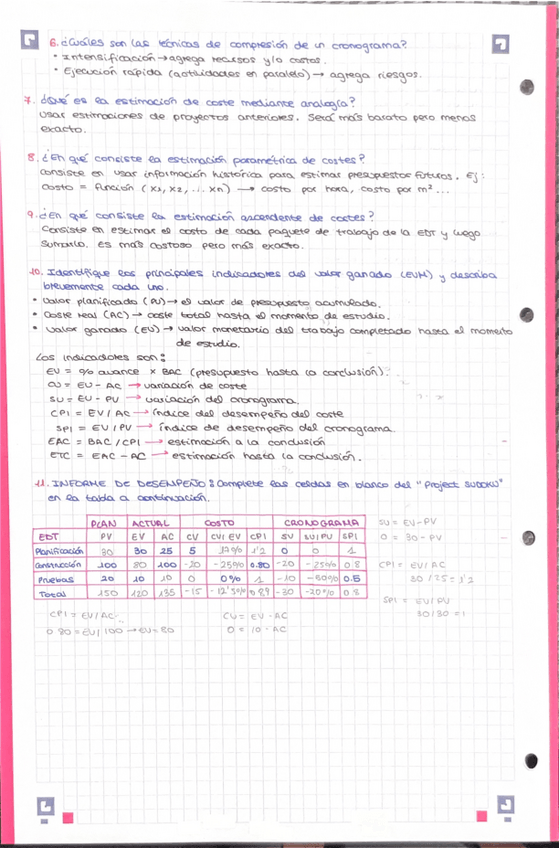 6. ¿Cuáles son las técnicas de compresión de un cronograma?
• Intensificación → agrega recursos y/o costos.
• Ejecución rápida (actividades en paralelo) → agrega riesgos.
7. ¿Qué es la estimación de coste mediante analogía?
Usar estimaciones de proyectos anteriores. Será más barato pero menos
exacto.
8. ¿En qué consiste la estimación paramétrica de costes?
Consiste en usar información histórica para estimar presupuestos futuros. Ej:
Costo = función (x1, x2, ... xn) → costo por hora, costo por m² ...
9. ¿En qué consiste la estimación ascendente de costes?
Consiste en estimar el costo de cada paquete de trabajo de la EDT y luego
sumarlo. Es más costoso pero más exacto.
10. Identifique los principales indicadores del valor ganado (EVM) y describa
brevemente cada uno.
• Valor planificado (PV) → el valor de presupuesto acumulado.
• Coste real (AC) → coste total hasta el momento de estudio.
• Valor ganado (EV) → valor monetario del trabajo completado hasta el momento
de estudio.
Los indicadores son:
EV = % avance x BAC (presupuesto hasta la conclusión).
CV = EV - AC → variación de coste
SV = EV - PV → variación del cronograma.
CPI = EV / AC → índice del desempeño del coste
SPI = EV / PV → índice de desempeño del cronograma.
EAC = BAC / CPI → estimación a la conclusión
ETC = EAC - AC → estimación hasta la conclusión.
11. INFORME DE DESEMPEÑO: Complete las celdas en blanco del "Project SUDOKU"
en la tabla a continuación.
PLAN ACTUAL COSTO CRONOGRAMA
EDT PV EV AC CV CV/EV CPI SV SV/PV SPI
Planificación 30 30 25 5 17% 1'2 0 0 1
Construcción 100 80 100 -20 -25% 0.80 -20 -25% 0.8
Pruebas 20 10 10 0 0% 1 -10 -50% 0.5
Total 150 120 135 -15 -12'5% 0.89 -30 -20% 0.8
SV = EV-PV
0 = 30 - PV
CPI = EV/AC
30 / 25 = 1'2
SPI = EV/PV
30/30 = 1
CPI = EV/AC
0.80 = EV/100 → EV = 80
CV = EV - AC
0 = 10 - AC